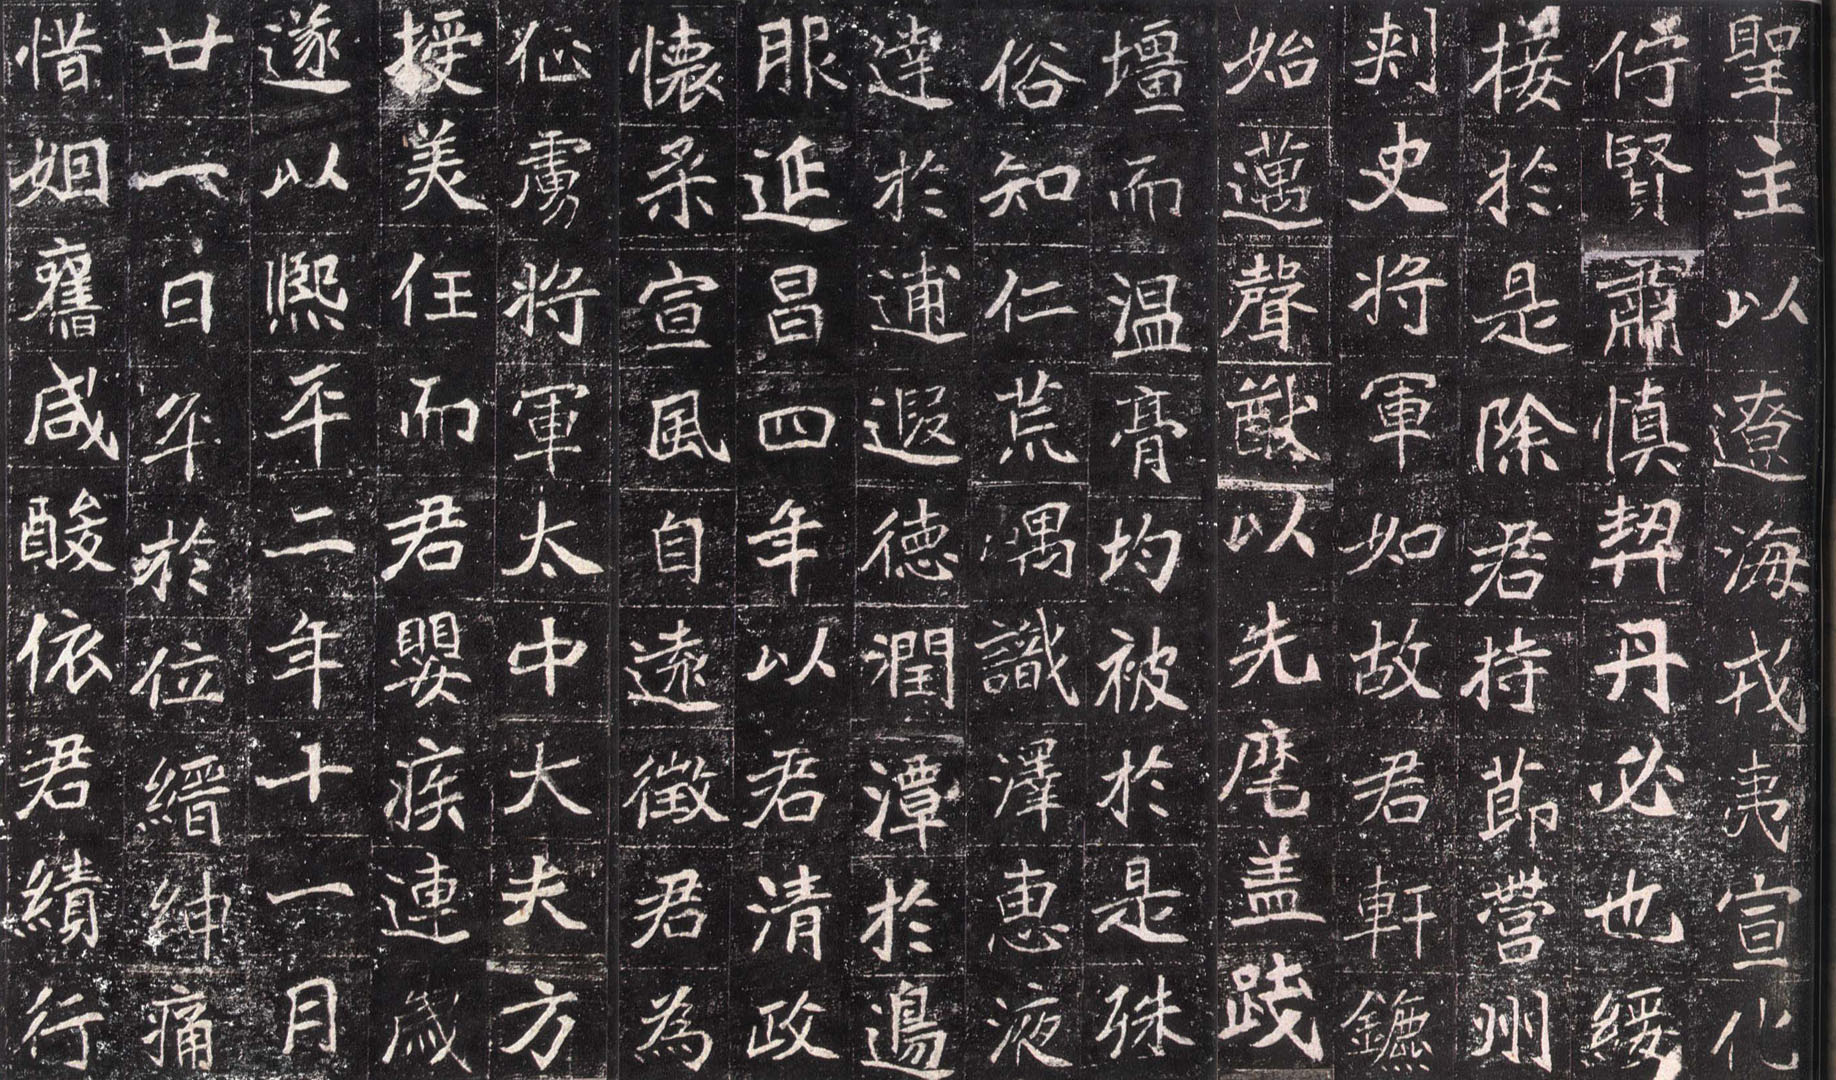 聖主以遼海戎夷宣化
佇賢肅慎契丹必也綏
接於是除君持節營州
刾史將軍如故君軒鑣
始邁聲猷以先麾盖踐
壃而温膏均被於是殊
俗知仁荒嵎識澤惠液
達於逋遐德潤潭於邊
服延昌四年以君清政
懷柔宣風自遠徵君為
征虜將軍太中大夫方
授美任而君嬰疾連歲
遂以熙平二年十一月
廿一日卒於位縉紳痛
惜姻舊咸酸依君績行